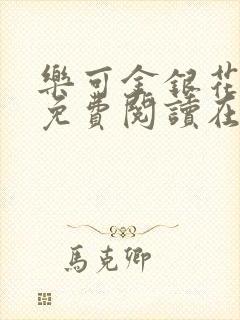 樂可金銀花
免費閱讀在
馬克卿